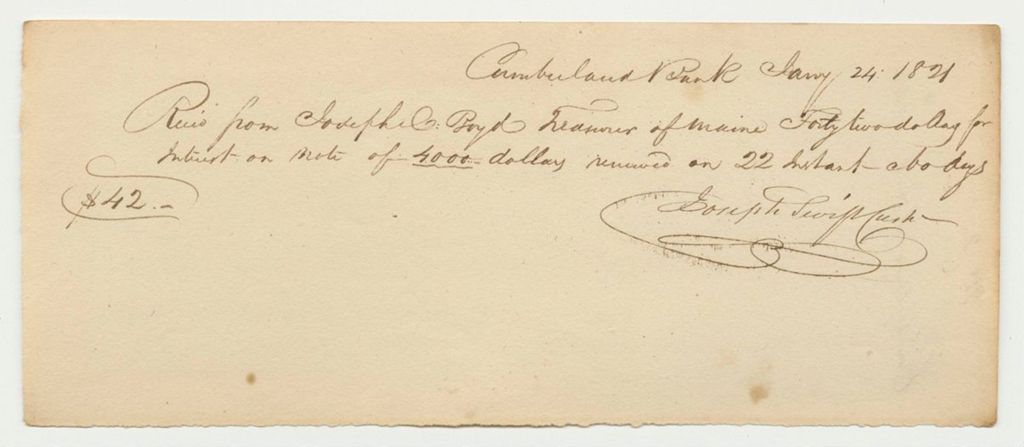 Cumberland Bank Jany 24. 1821
Rec'd from Joseph C. Boyd Treasurer of Maine Forty two dollars for
Interest on Note of 4000 dollars renewed on 22 Instant @ 60 days
$42.-
Joseph Swift Cash